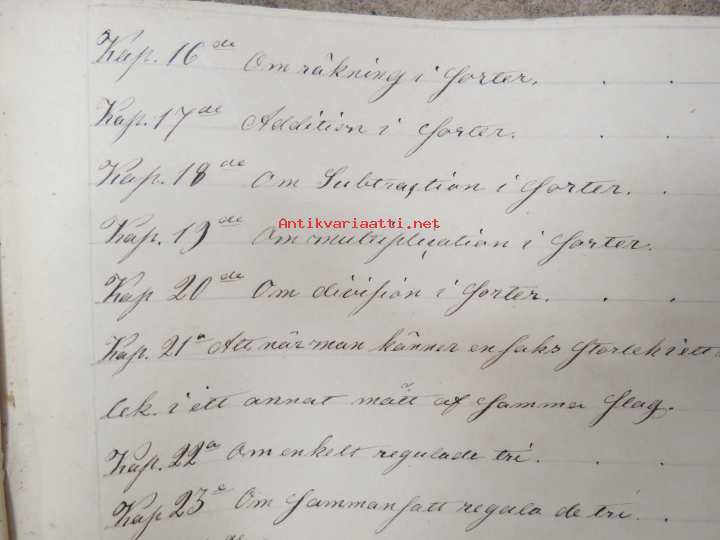 Kap. 16de Om räkning i Sorter. . .
Kap. 17de Addition i Sorter. . .
Kap. 18de Om Subtraction i Sorter. .
Antikvariaatti.net
Kap. 19de Om multiplication i Sorter.
Kap 20de Om division i Sorter. . .
Kap. 21a Att när man känner en saks Storlek i ett
lek i ett annat mått af Samma Slag.
Kap. 22a Om enkelt regulade tri. . .
Kap 23e Om Sammansatt regula de tri. .